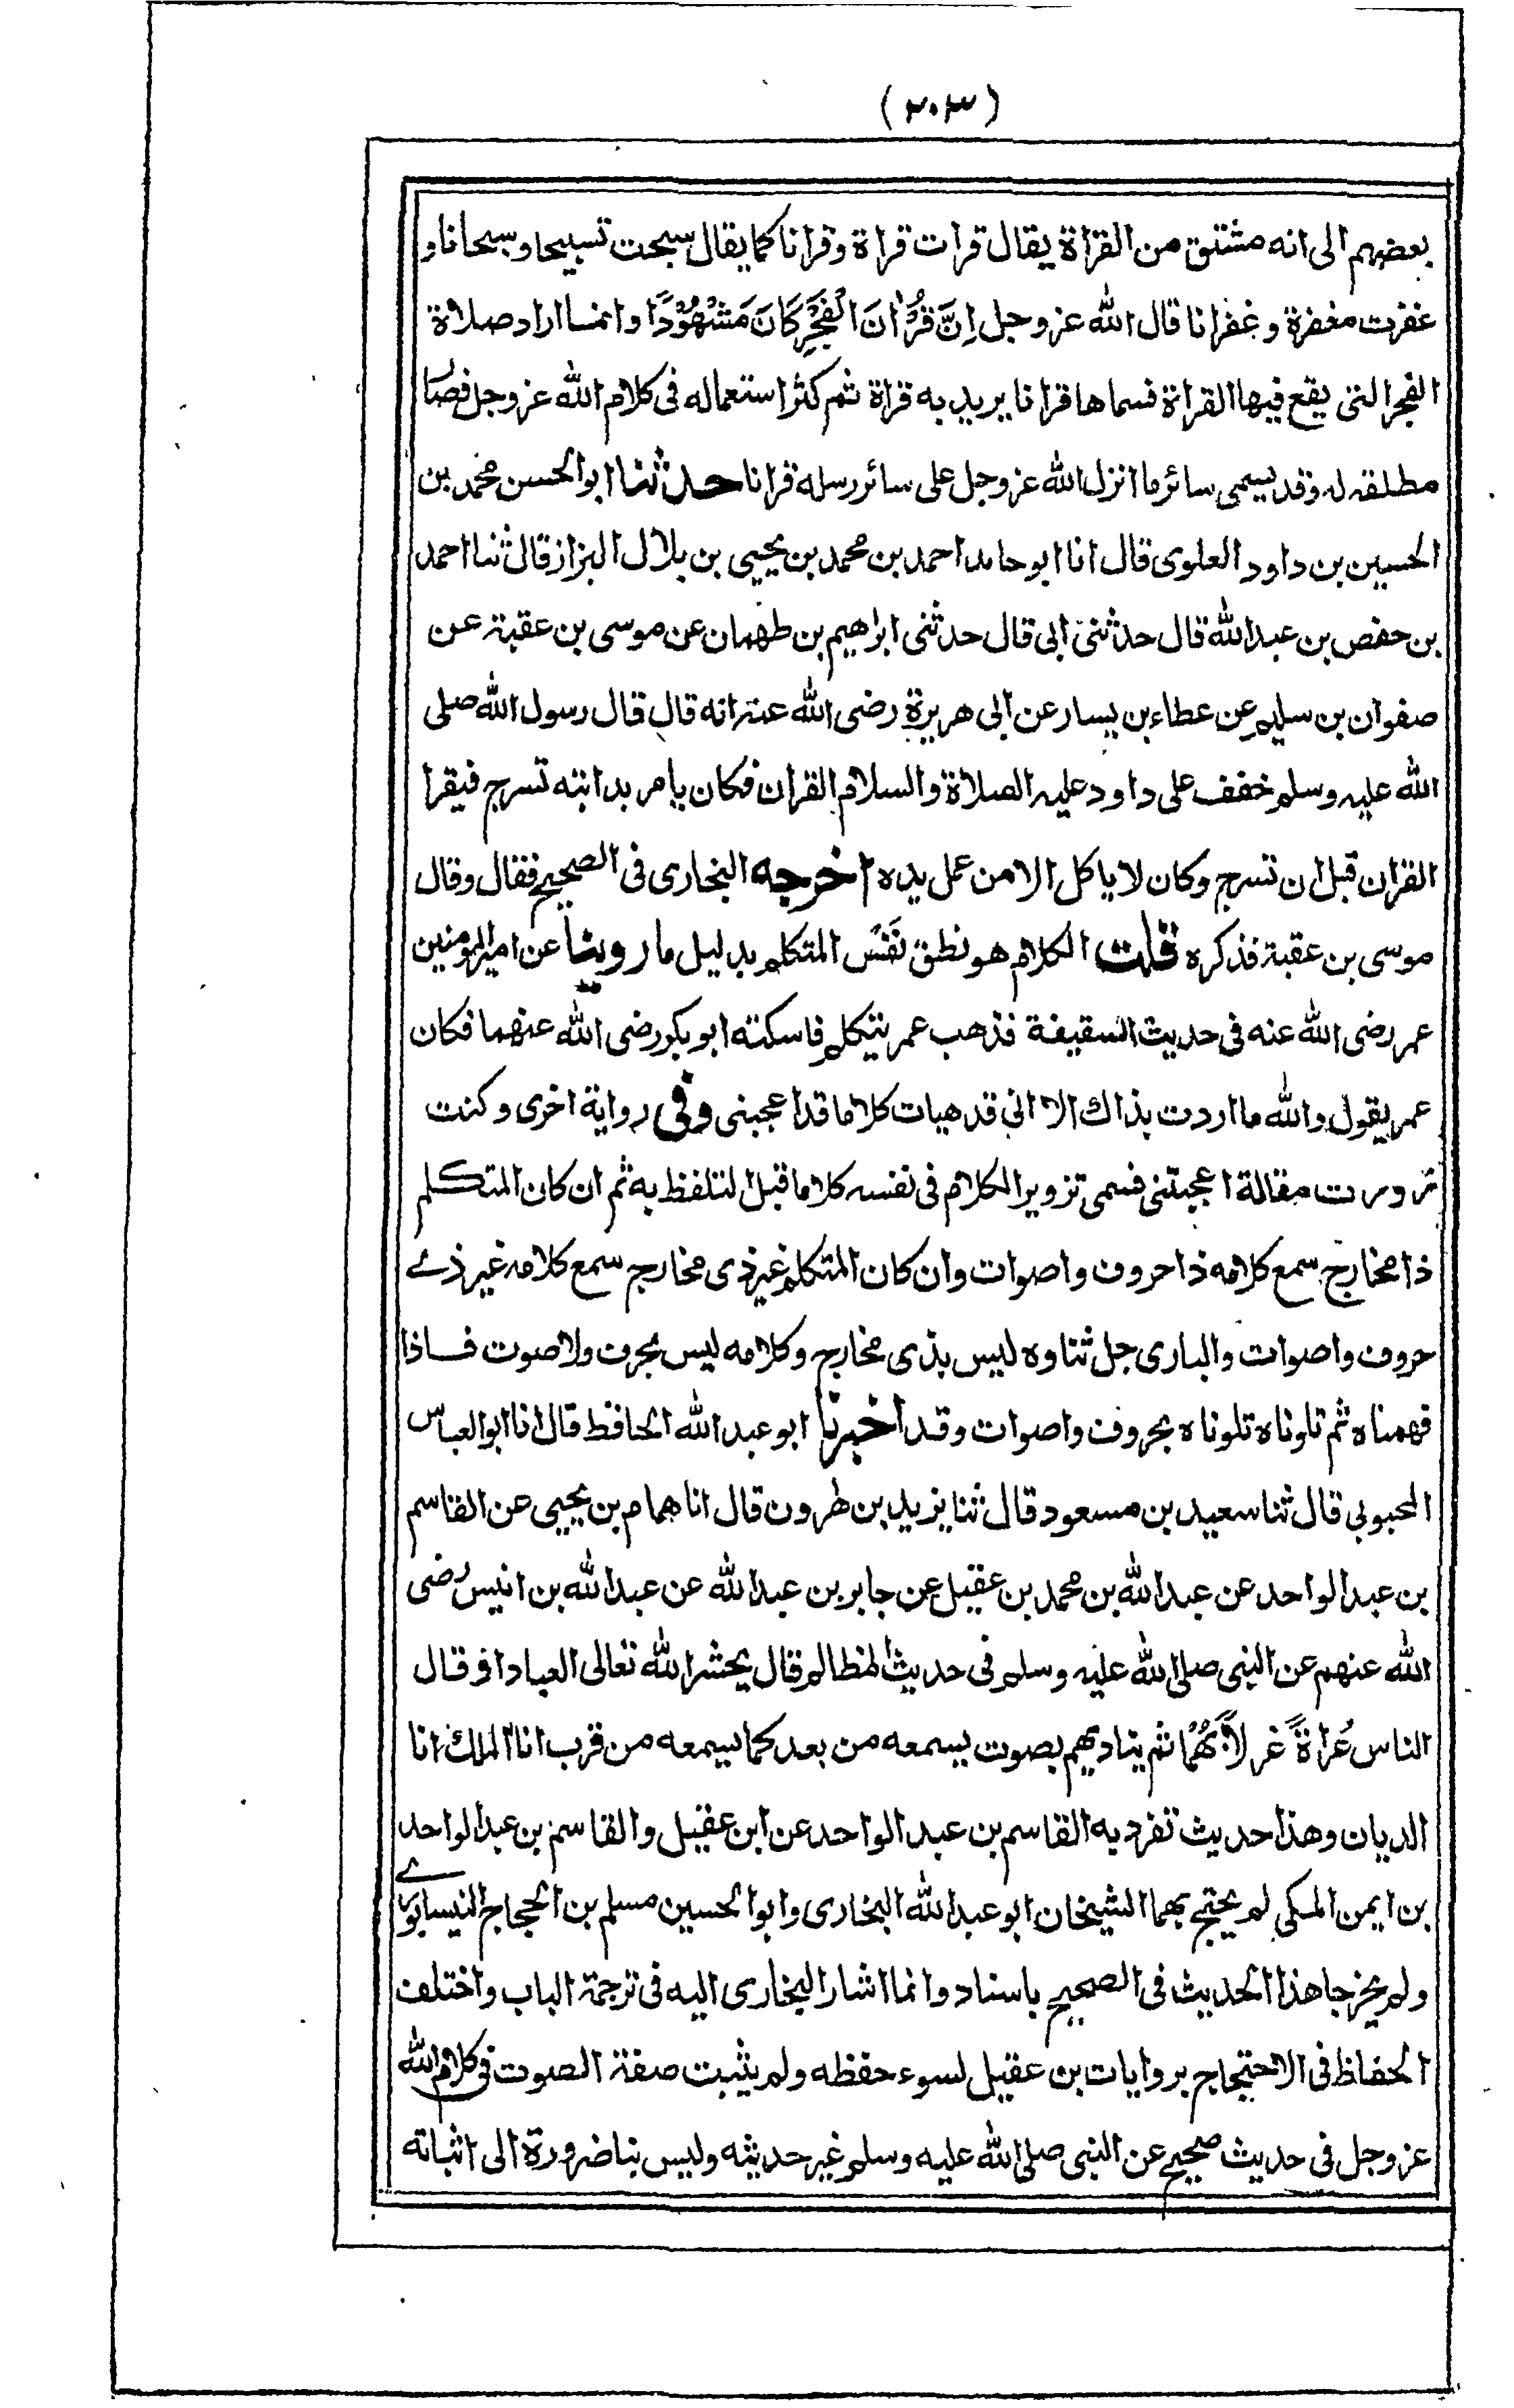 (٢٠٣)
بعضهم الى انه مشتق من القراة يقال قرات قراة وقرانا كما يقال سبحت تسبيحا وسبحانا و
غفرت مغفرة وغفرانا قال الله عزوجل اِنَّ قُرْاٰنَ الْفَجْرِ كَانَ مَشْهُوْدًا وانما اراد صلاة
الفجر التى يقع فيها القراة فسماها قرانا يريد به قراة ثم كثر استعماله فى كلام الله عزوجل فصار
مطلقه له وقد يسمى سائر ما انزل الله عزوجل على سائر رسله قرانا حدثنا ابو الحسن محمد بن
الحسين بن داود العلوى قال انا ابو حامد احمد بن محمد بن يحيى بن بلال البزاز قال ثنا احمد
بن حفص بن عبدالله قال حدثنى ابى قال حدثنى ابراهيم بن طهمان عن موسى بن عقبة عن
صفوان بن سليم عن عطاء بن يسار عن ابى هريرة رضى الله عنه انه قال قال رسول الله صلى
الله عليه وسلم خفف على داود عليه الصلاة والسلام القران فكان يامر بدابته تسرج فيقرا
القران قبل ان تسرج وكان لا ياكل الا من عمل يده اخرجه البخارى فى الصحيح فقال وقال
موسى بن عقبة فذكره قلت الكلام هو نطق نَفْس المتكلم بدليل ما روينا عن امير المومنين
عمر رضى الله عنه فى حديث السقيفة فذهب عمر يتكلم فاسكته ابو بكر رضى الله عنهما فكان
عمر يقول والله ما اردت بذاك الا انى قد هيات كلاما قد اعجبنى وفى رواية اخرى وكنت
زورت مقالة اعجبتنى فسمى تزوير الكلام فى نفسه كلاما قبل لتلفظ به ثم ان كان المتكلم
ذا مخارج سمع كلامه ذا حروف واصوات وان كان المتكلم غير ذى مخارج سمع كلامه غير ذے
حروف واصوات والبارى جل ثناوه ليس بذى مخارج وكلامه ليس بحرف ولا صوت فاذا
فهمناه ثم تلوناه تلوناه بحروف واصوات وقد اخبرنا ابو عبد الله الحافظ قال انا ابو العباس
المحبوبى قال ثنا سعيد بن مسعود قال ثنا يزيد بن هرون قال انا همام بن يحيى عن القاسم
بن عبد الواحد عن عبد الله بن محمد بن عقيل عن جابر بن عبد الله عن عبد الله بن انيس رضى
الله عنهم عن النبى صلى الله عليه وسلم فى حديث المظالم قال يحشر الله تعالى العباد او قال
الناس عُراةً غرلا بُهْمًا ثم يناديهم بصوت يسمعه من بعد كما يسمعه من قرب انا الملك انا
الديان وهذا حديث تفرد به القاسم بن عبد الواحد عن ابن عقيل والقاسم بن عبد الواحد
بن ايمن المكى لم يحتج بهما الشيخان ابو عبد الله البخارى وابو الحسين مسلم بن الحجاج النيسابورے
ولم يخرجا هذا الحديث فى الصحيح باسناد وانما اشار البخارى اليه فى ترجمة الباب واختلف
الحفاظ فى الاحتجاج بروايات بن عقيل لسوء حفظه ولم يثبت صفة الصوت فى كلام الله
عزوجل فى حديث صحيح عن النبى صلى الله عليه وسلم غير حديثه وليس بنا ضرورة الى اثباته